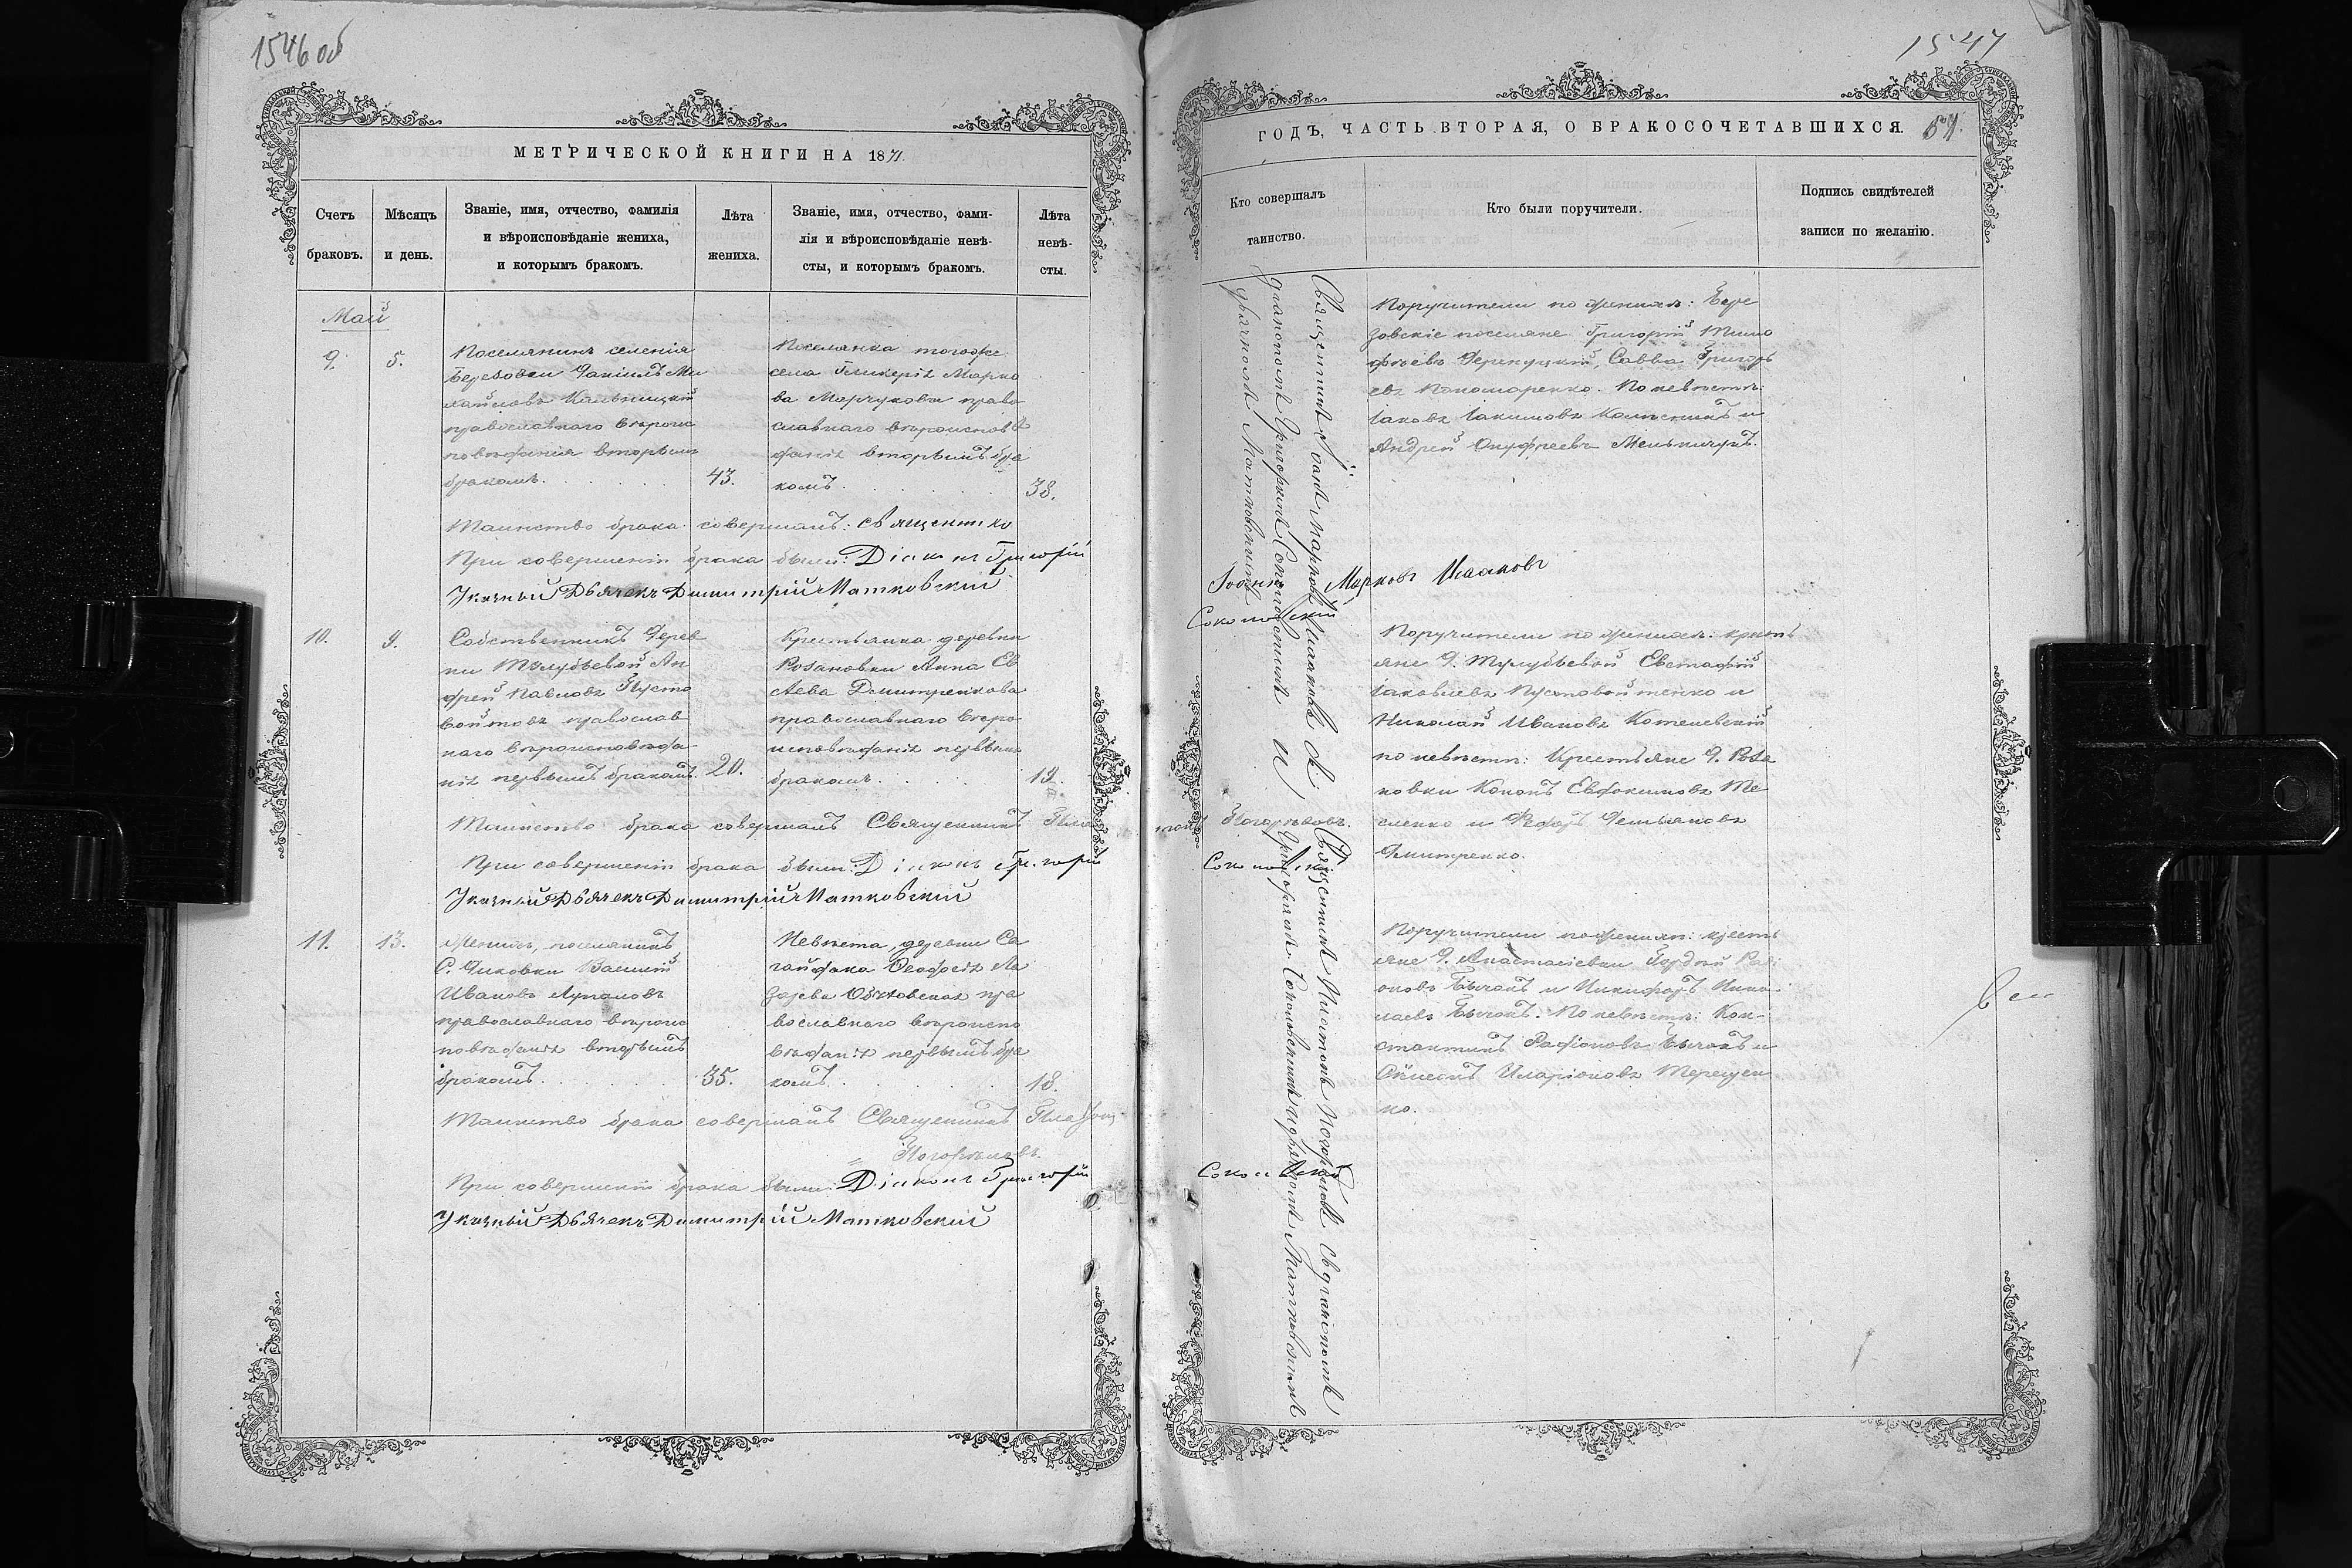 1546 об
МЕТРИЧЕСКОЙ КНИГИ НА 1871.
Счетъ браковъ.
Мѣсяцъ и день.
Званіе, имя, отчество, фамилія
и вѣроисповѣданіе жениха,
и которымъ бракомъ.
Лѣта жениха.
Званіе, имя, отчество, фами-
лія и вѣроисповѣданіе невѣ-
сты, и которымъ бракомъ.
Лѣта невѣ-
сты.
Май
9.
5.
Поселянинъ селенія
Березовки Даніилъ Ми
хайловъ
православнаго вѣроис
повѣданія вторымъ
бракомъ.
43.
Поселянка тогоже
села Гликерія Марко
ва Марчукова право
славнаго вѣроисповѣ
данія вторымъ бра
комъ.
38.
Таинство брака совершалъ: священико
При совершеніи брака были: Діаконъ Григорій
Указный Дьячекъ Димитрій Матковский
10.
9.
Собственникъ Дерев
ни Тулубьевой Ан
дрей Павловъ Пусто
войтовъ православ
наго вѣроисповѣда
нія первымъ бракомъ.
20.
Крестьянка деревни
Розановки Анна Ев
Дмитренкова
православнаго вѣро
исповѣданія первымъ
бракомъ.
19.
Таинство брака совершалъ Священникъ Пла
При совершеніи брака были: Діаконъ Григорій
Указный Дьячекъ Димитрій Матковский
11.
13.
Женихъ, поселянинъ
С. Диковки Василій
Ивановъ Лупаловъ
православнаго вѣроис
повѣданія вторымъ
бракомъ.
35.
Невѣста, деревни Са
гайдака Феодосія Ла
зарева православ
вославнаго вѣроиспо
вѣданія первымъ бра
комъ.
18.
Таинство брака совершалъ Священникъ Платонъ
Погорѣловъ.
При совершеніи брака были: Діаконъ Григорій
Указный Дьячекъ Димитрій Матковский
1547
ГОДЪ, ЧАСТЬ ВТОРАЯ, О БРАКОСОЧЕТАВШИХСЯ.
57.
Кто совершалъ
таинство.
Кто были поручители.
Подпись свидѣтелей
записи по желанію.
Священникъ Іоаннъ Марковъ Исааковъ съ
діакономъ Григоріемъ Соколовскимъ и
дьячкомъ Матковскимъ
Поручители по женихѣ: Бере
зовскіе поселяне Григорій Тимо
фѣевъ Савва Григорь
евъ Пономаренко. По невѣстѣ:
Іаковъ Іакимовъ и
Андрей Онуфріевъ Мельничукъ.
Іоаннъ Марковъ Исааковъ
Соколовский
Поручители по женихѣ: кресть
яне Д. Тулубьевой Евстафій
Іаковлевъ Пустовойтенко и
Николай Ивановъ Котелевскій
по невѣстѣ: Крестьяне Д. Роза
новки Кононъ Евдокимовъ Те
сленко и Федоръ Демьяновъ
Дмитренко.
тонъ Погорѣловъ.
Соколовский
Священникъ Платонъ Погорѣловъ съ діакономъ
Григоріемъ Соколовскимъ и дьячкомъ Матковскимъ
Поручители по женихѣ: кресть
яне Д. Анастасіевки Гордѣй Роді
оновъ Бычокъ и Никифоръ Нико
лаевъ Бычокъ. По невѣстѣ: Кон-
стантинъ Родіоновъ Бычокъ и
Иларіоновъ Терещен
ко.
Соколовский